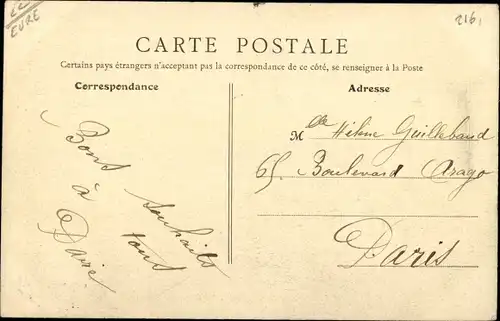 EURE
216,
CARTE POSTALE
Certains pays étrangers n'acceptant pas la correspondance de ce côté, se renseigner à la Poste
Correspondance
Adresse
Bons souhaits
à tous
Mlle Hélène Guillebaud
65, Boulevard Arago
Paris